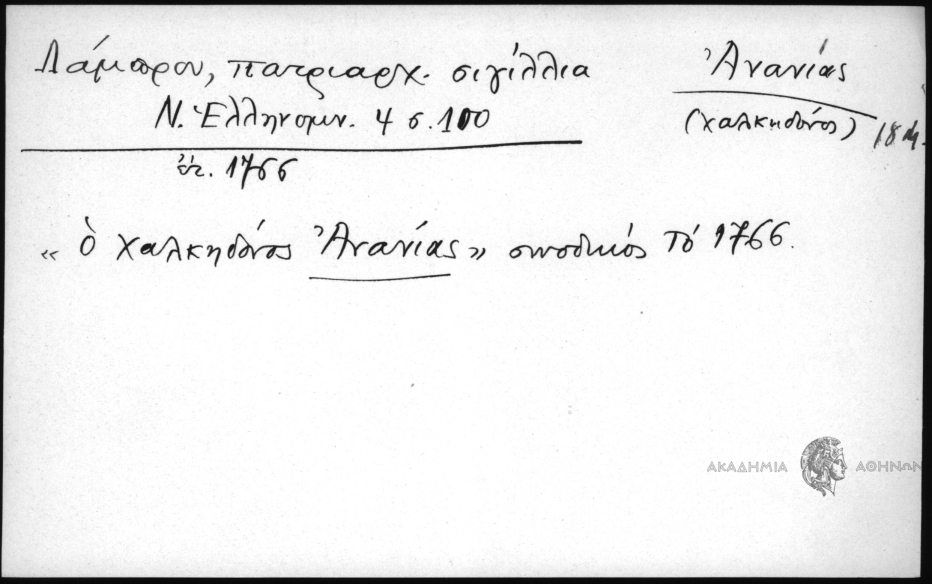 Λάμπρου, πατριαρχ. σιγίλλια
Ν. Ἑλληνομν. 4 σ. 100
ἔτ. 1766
Ἀνανίας
(Χαλκηδόνος)
« ὁ Χαλκηδόνος Ἀνανίας » συνοδικός τό 1766.
ΑΚΑΔΗΜΙΑ ΑΘΗΝΩΝ